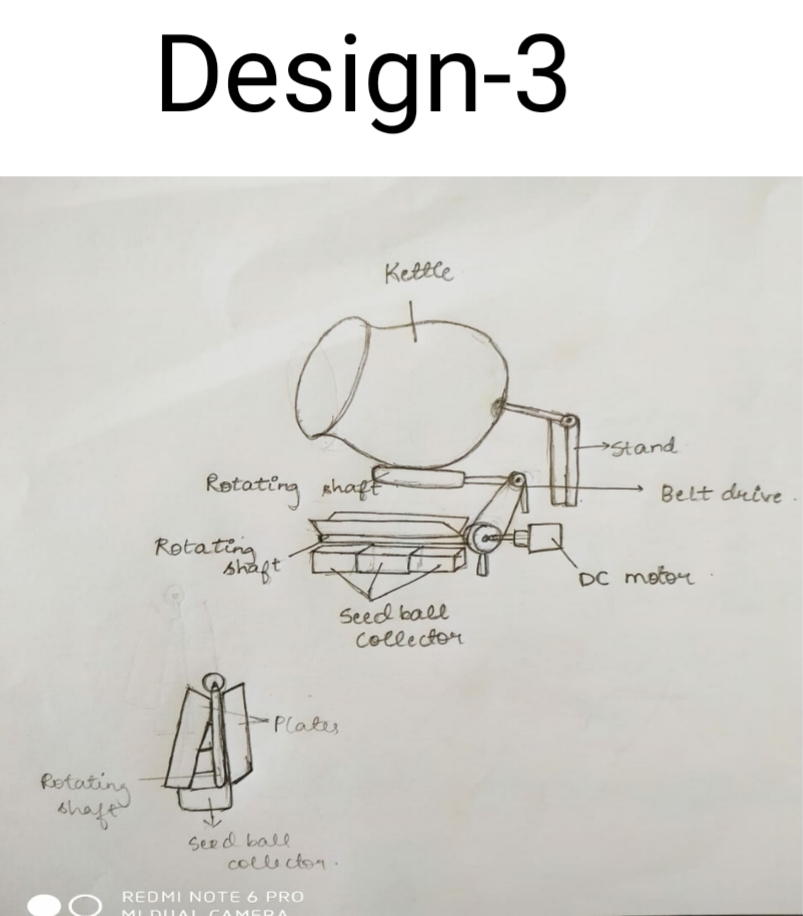 Design-3
Kettle
Stand
Rotating shaft
Belt drive.
Rotating
shaft
DC motor.
Seed ball
collector
Plates
Rotating
shaft
Seed ball
collector.
REDMI NOTE 6 PRO
MI DUAL CAMERA